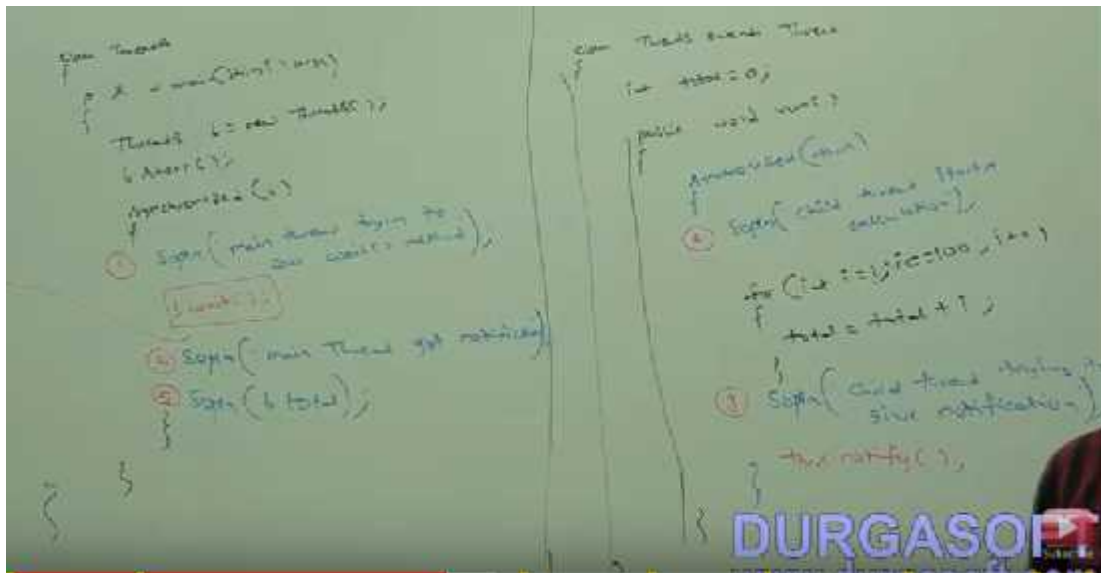 class ThreadA
{
p s v main(String[] args)
{
ThreadB b = new ThreadB();
b.start();
synchronized(b)
{
① Sopln("main thread trying to
call wait() method");
b.wait();
Sopln("main Thread got notification");
⑤ Sopln(b.total);
}
}
}
class ThreadB extends Thread
{
int total = 0;
public void run()
{
synchronized(this)
{
② Sopln("child thread starts
calculation");
for(int i=1; i<=100; i++)
{
total = total + i;
}
③ Sopln("child thread trying to
give notification");
this.notify();
}
}
DURGASOFT